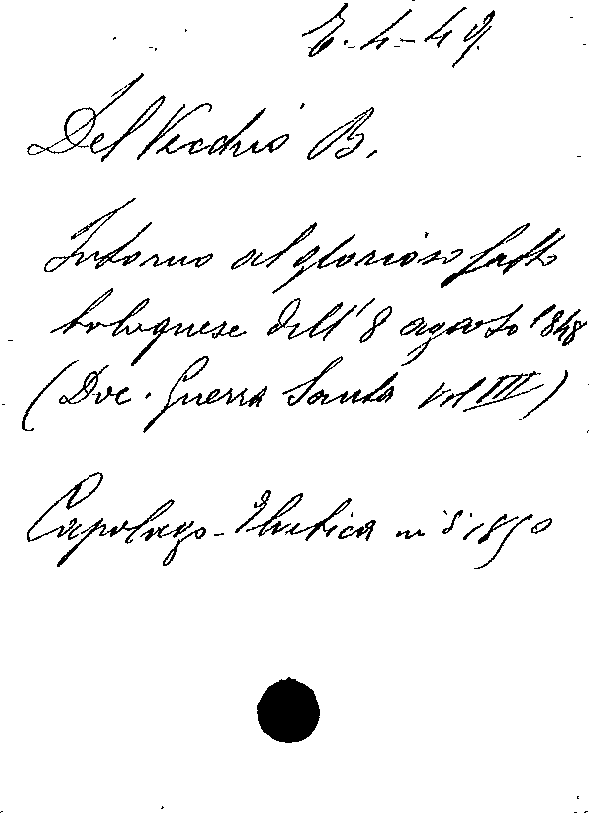 E-4-49.
Del Vecchio B.
Intorno al glorioso fatto
bolognese dell'8 agosto 1848
(Doc. Guerra Santa vol III)
Capolago-Elvetica in 8° 1850